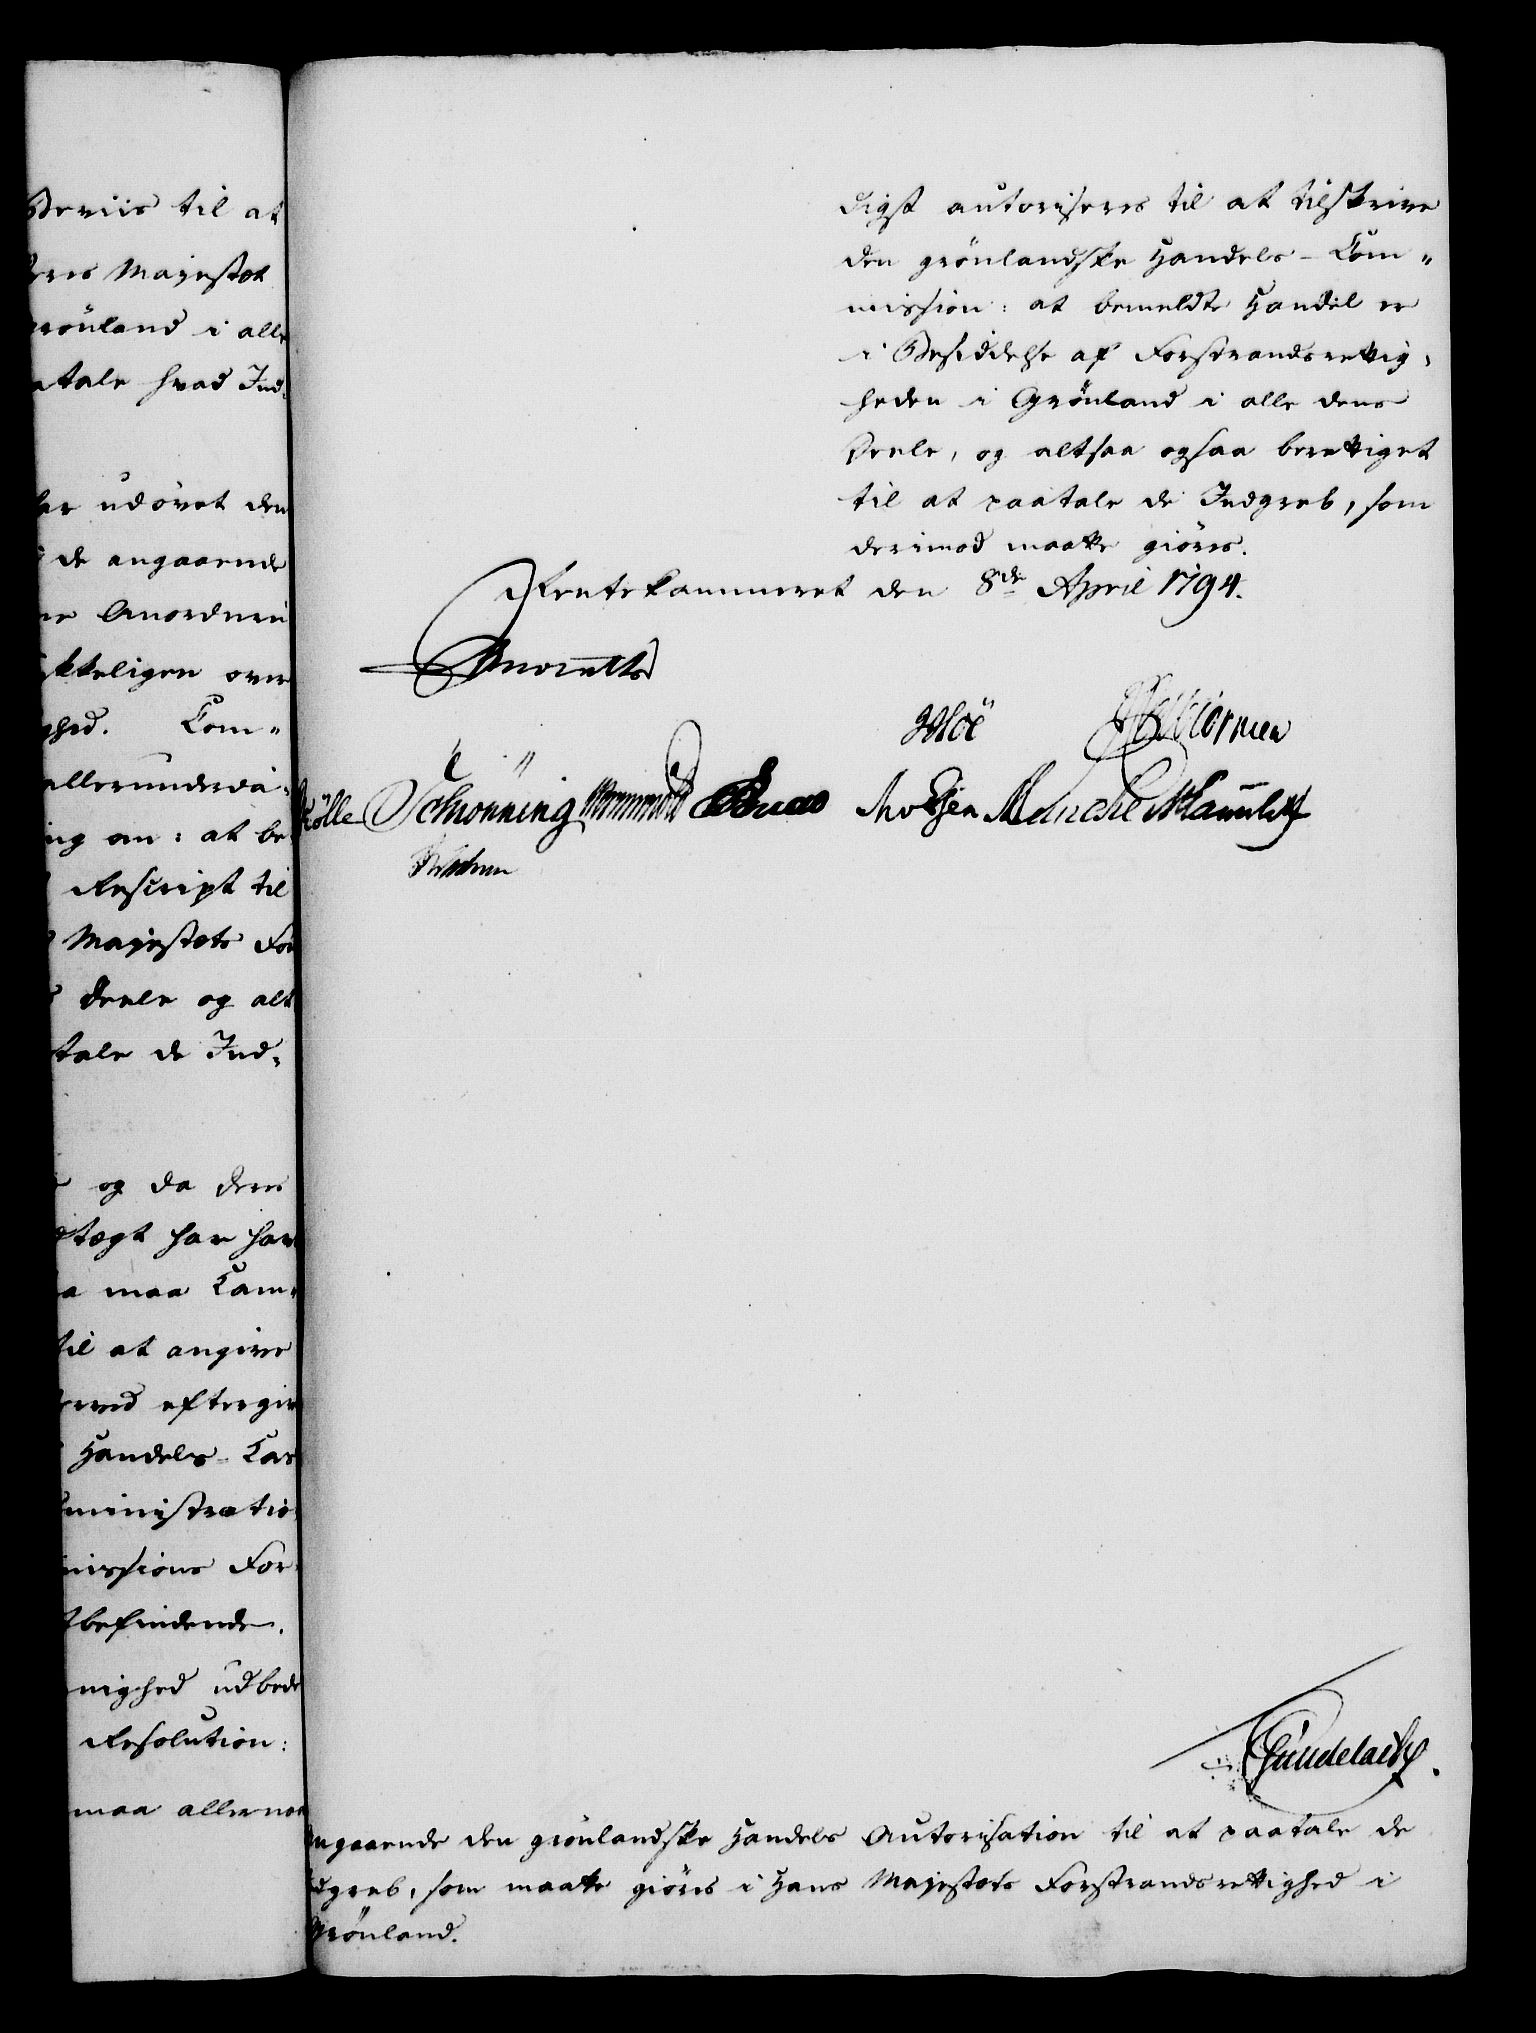 Beviis til at
Majestæt
Grönland i alle
hvad Ind-
udövet den
de angaaende
Anordnin
over
Com-
allerunderda-
ing an: at be
Rescript til
Majestæts For
Deele og alt
tale de Ind-
og da den
har hav
maa Cam-
til at angive
eftergiv
Handels-Cas
ministratio
missions For-
befindende.
udbede
Resolution:
maa allernaa
digst autoriseres til at tilskrive
den grönlandske Handels-Com-
mission: at bemeldte Handel er
i Besiddelse af Forstrandsrettig-
heden i Grönland i alle dens
Deele, og altsaa ogsaa berettiget
til at paatale de Indgreb, som
derimod maatte giöres.
Rentekammeret den 8de April 1794.
Schönning
Gundelach.
Angaaende den grönlandske Handels Autorisation til at paatale de
Indgreb, som maatte giöres i Hans Majestæts Forstrandsrettighed i
Grönland.